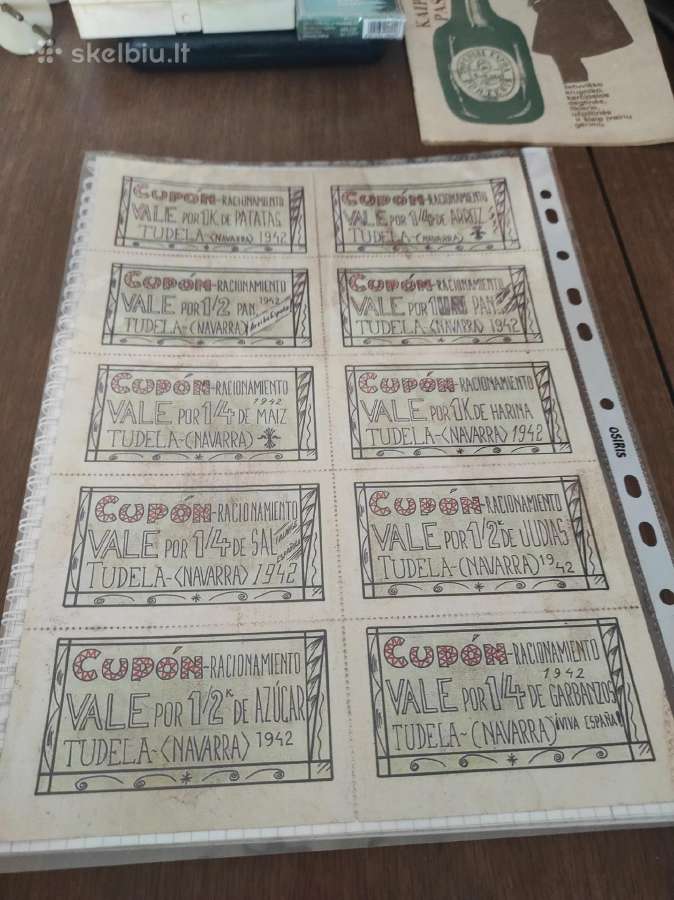 skelbiu.lt
KAIP
PAS
ORIGINAL EXTRA
OSIRIS
CUPÓN-RACIONAMIENTO
VALE POR 1K DE PATATAS
TUDELA-(NAVARRA) 1942
CUPÓN-RACIONAMIENTO
VALE POR 1/4 DE ARROZ
TUDELA-(NAVARRA)
CUPÓN-RACIONAMIENTO
VALE POR 1/2 PAN 1942
TUDELA-(NAVARRA) Arriba España
CUPÓN-RACIONAMIENTO
VALE POR 1 PAN
TUDELA-(NAVARRA) 1942
CUPÓN-RACIONAMIENTO
1942
VALE POR 1/4 DE MAIZ
TUDELA-(NAVARRA)
CUPÓN-RACIONAMIENTO
VALE POR 1K DE HARINA
TUDELA-(NAVARRA) 1942
CUPÓN-RACIONAMIENTO
VALE POR 1/4 DE SAL
TUDELA-(NAVARRA) 1942
CUPÓN-RACIONAMIENTO
VALE POR 1/2K DE JUDIAS
TUDELA-(NAVARRA) 1942
CUPÓN-RACIONAMIENTO
VALE POR 1/2K DE AZÚCAR
TUDELA-(NAVARRA) 1942
CUPÓN-RACIONAMIENTO
1942
VALE POR 1/4 DE GARBANZOS
TUDELA-(NAVARRA) ¡VIVA ESPAÑA!